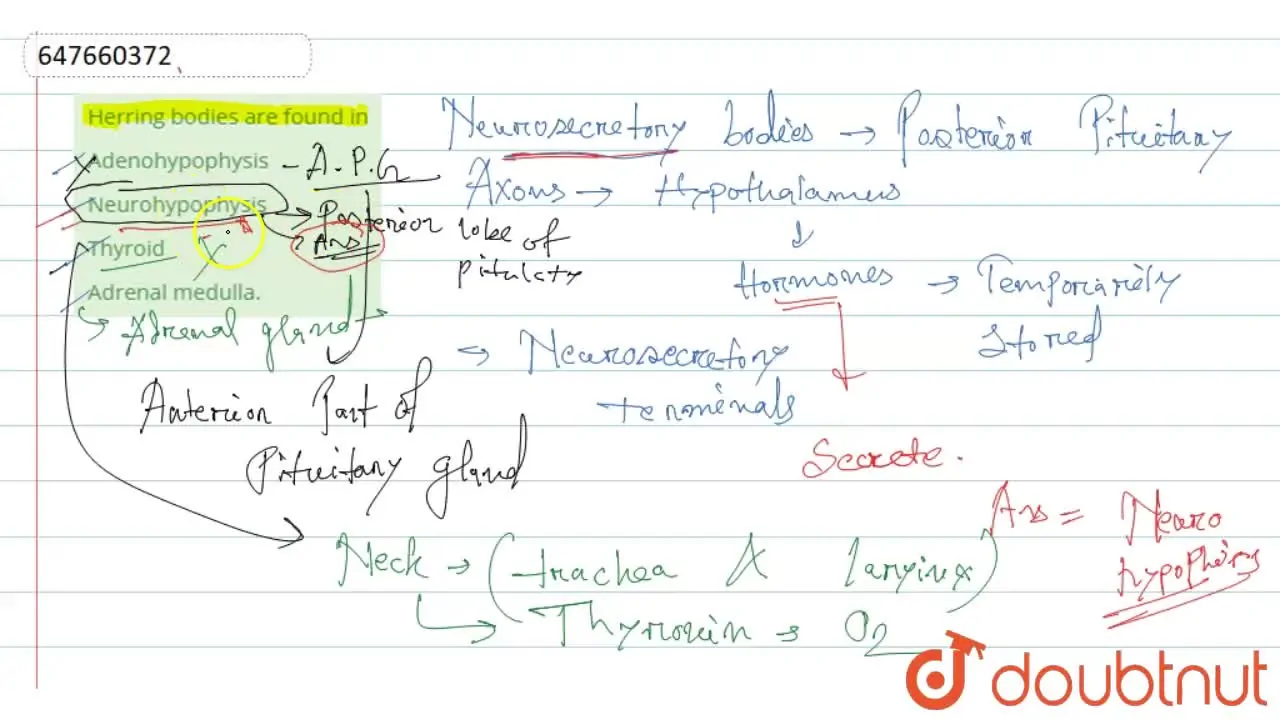 647660372
Herring bodies are found in
Adenohypophysis - A.P.G
Neurohypophysis → Posterior lobe of pitulaty
Ans
Thyroid X
Adrenal medulla.
Adrenal gland
Anterior Part of
Pituitary gland
Neurosecretory bodies → Posterior Pituitary
Axons → Hypothalamus
↓
Hormones → Temporarily
stored
→ Neurosecretory
terminals
Secrete.
Ans = Neuro
hypophisis
Neck → (trachea & larynx)
Thyroxin → O2
doubtnut